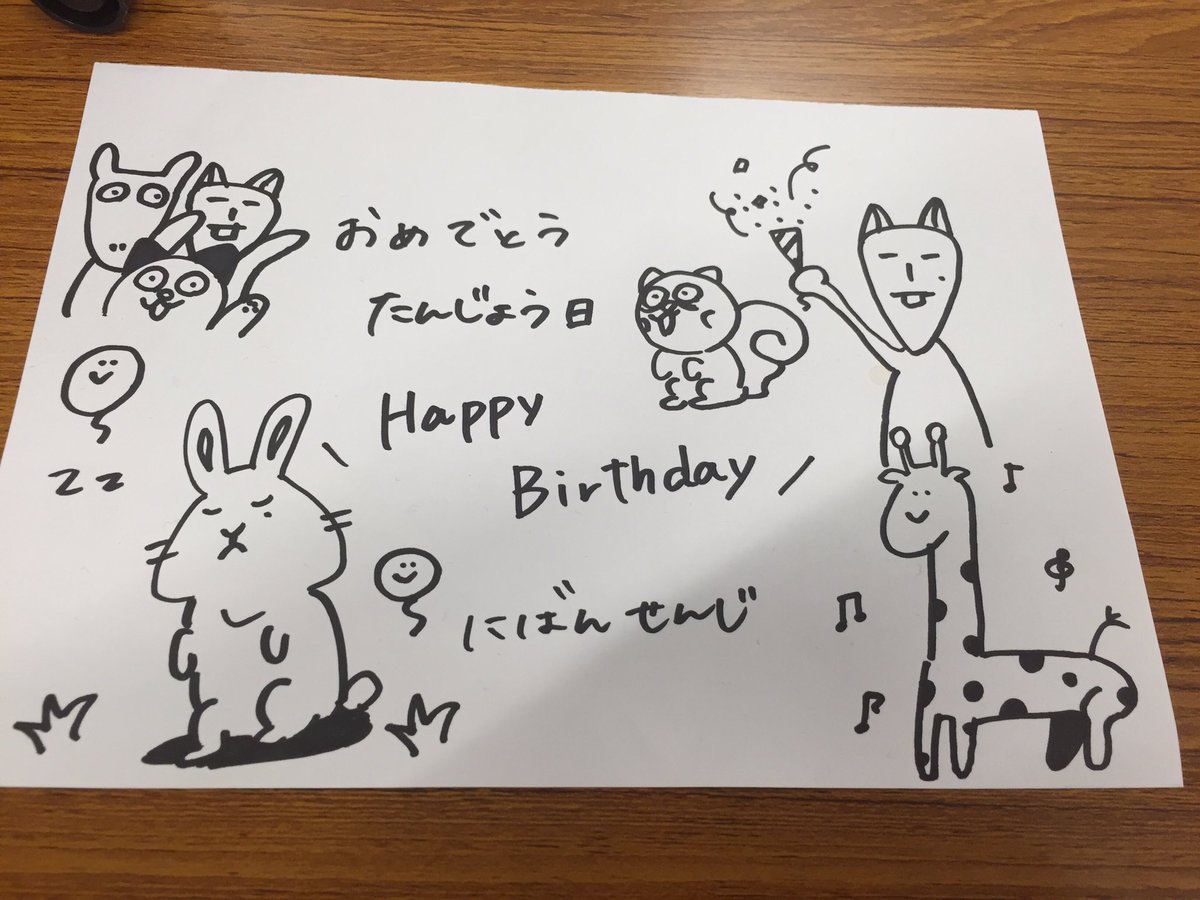 おめでとう
たんじょう日
Happy
Birthday
にばんせんじ
zz